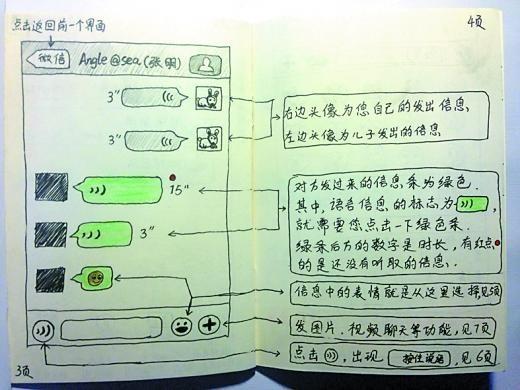 点击返回前一个界面
微信 Angle@sea(张明)
3"
3"
15"
3"
3页
4页
右边头像为您自己的发出信息
左边头像为儿子发出的信息
对方发过来的信息条为绿色.
其中,语音信息的标志为
就需要您点击一下绿色条.
绿条后方的数字是时长,有红点
的是还没有听取的信息.
信息中的表情就是从这里选择见5页
发图片、视频聊天等功能,见7页
点击 ,出现 按住说话 ,见6页